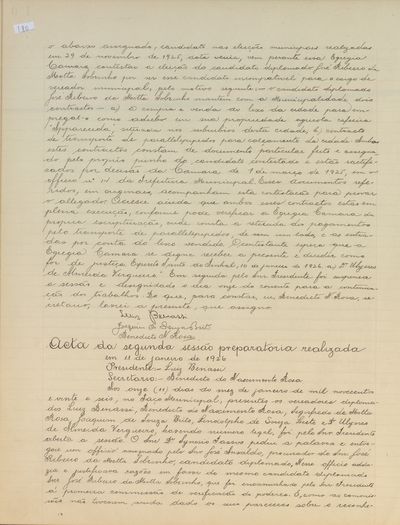 o abaixo assignado, candidato nas eleições municipais realizadas
em 29 de novembro de 1925, nesta cidade, vem perante essa Egregia
Camara contestar a eleição do candidato diplomado José Ribeiro da
Motta Sobrinho por ser esse candidato incompativel para o cargo de
vereador municipal, pelo motivo seguinte: o candidato diplomado
José Ribeiro da Motta Sobrinho mantem com a Municipalidade dois
contractos — a) o compra e venda de lixo da cidade para em-
pregal-o como adubo em sua propriedade agricola
"Apparecida", situada nos suburbios desta cidade, b) contracto
de transporte de parallelepipedos para calçamento da cidade. Ambos
estes contractos constam de documento particular feito e assigna-
do pelo proprio punho do candidato contestado e estão ratifi-
cados por decisão da Camara de 1 de março de 1925, em
officio nº 14 da Prefeitura Municipal. Esses documentos refe-
ridos, em original, acompanham esta contestação para provar
o allegado. Accresce ainda que ambos esses contractos estão em
plena execução, conforme pode verificar a Egregia Camara da
propria escripturação, onde consta a sahida dos pagamentos
pelo transporte de parallelepipedos, de um lado, e as entra-
das por conta do lixo vendido. O contestante espera que a
Egregia Camara se digne receber a presente e decidir como
for de justiça. Espirito Santo do Pinhal, 10 de janeiro de 1926. a) Dr Ulysses
de Almeida Vergueiro." Em seguida pelo Snr Presidente foi suspensa
a sessão e designado o dia onze do corrente para a continua-
ção do trabalhos. Do que, para constar, eu, Benedicto N. Rosa, se-
cretario, lavrei a presente, que assigno.
Luiz Benassi
Joaquim
Benedicto N. Rosa
Acta da segunda sessão preparatoria realizada
em 11 de janeiro de 1926
Presidente: Luiz Benassi
Secretario: Benedicto do Nascimento Rosa
Aos onze (11) dias do mez de janeiro de mil novecentos
e vinte e seis, no Paço Municipal, presentes os vereadores diploma-
dos Luiz Benassi, Benedicto do Nascimento Rosa, Sigefredo da Motta
Rosa, Joaquim de Souza Brito, e Dr Ulysses
de Almeida Vergueiro, havendo numero legal, foi pelo Snr Presidente
aberta a sessão. O Snr Dr pediu a palavra e entre-
gou um officio assignado pelo Snr José procurador do Snr José
Ribeiro da Motta Sobrinho, candidato diplomado. Nesse officio adu-
zia e justificava razões em favor do mesmo candidato diplomado
Snr José Ribeiro da Motta Sobrinho, que foi encaminhado pelo Snr Presidente
á primeira commissão de verificação de poderes. E, como as commis-
sões não tivessem ainda dado os seus pareceres sobre o reconhe-